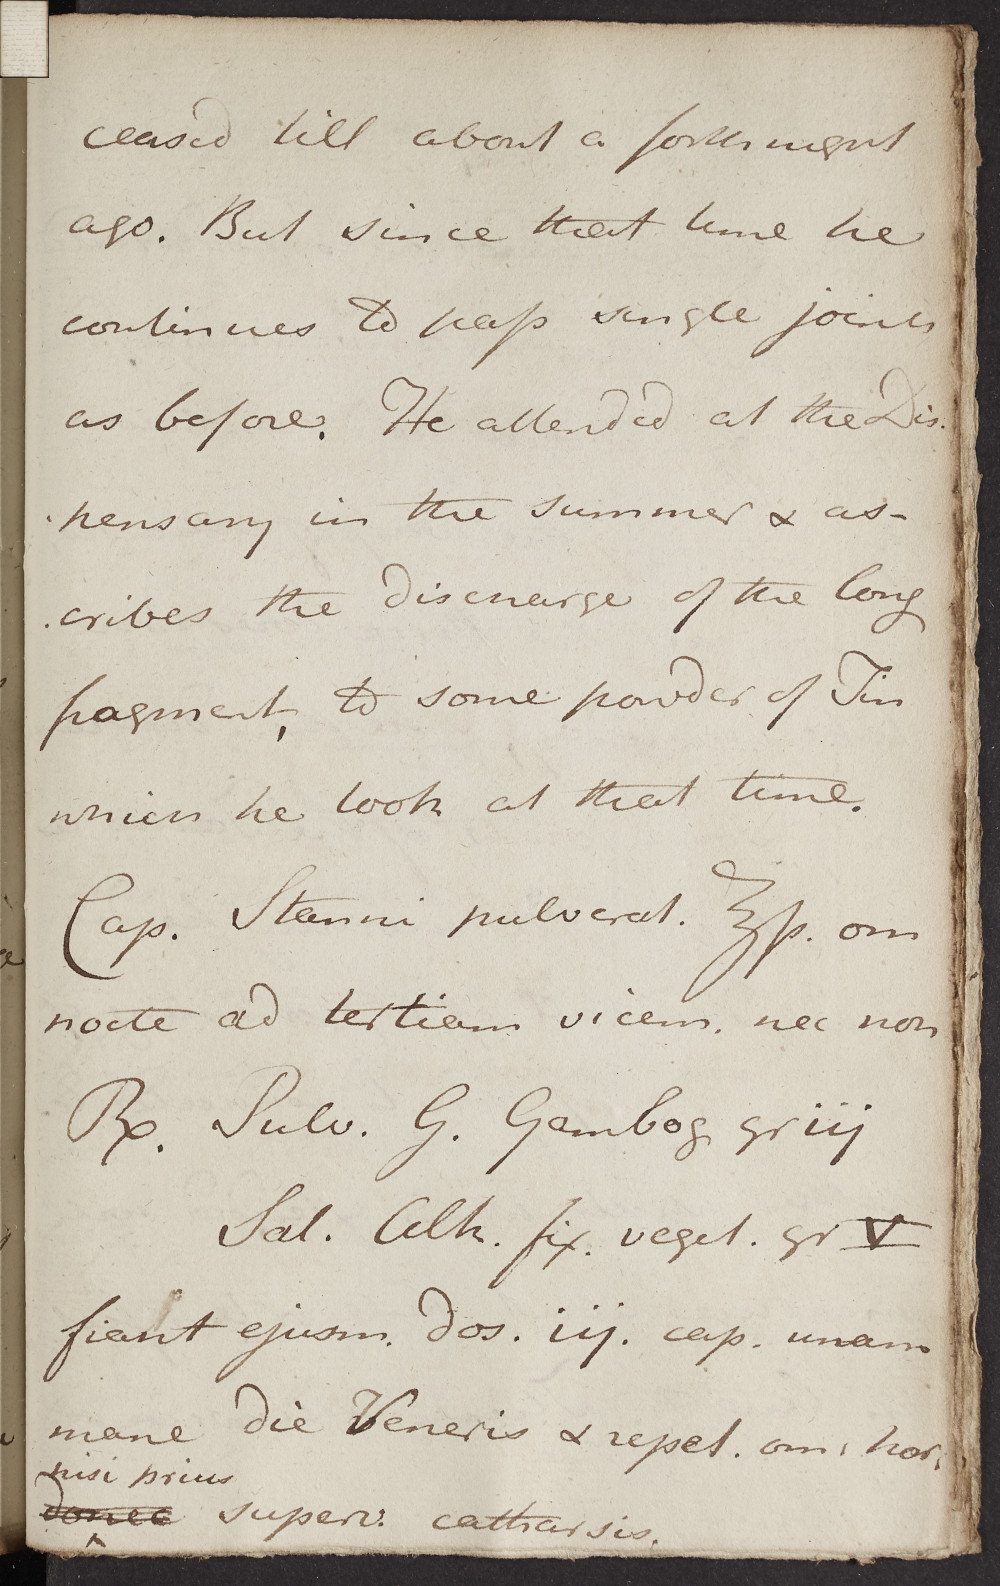 ceased till about a forthnight
ago. But since that time he
continues to pass single joints
as before. He attended at the Dis-
-pensary in the summer & as-
-cribes the discharge of the long
fragment, to some powder of Tin
which he took at that time.
Cap. Stanni pulverat. ℥ſs. om
nocte ad tertiam vicem. nec non
℞. Pulv. G. Gambog gr iij
Sal. Alk. fix. veget. gr V
fiant ejusm. dos. iij. cap. unam
mane die Veneris & repet. om. hor.
nisi prius
donec superv. catharsis.